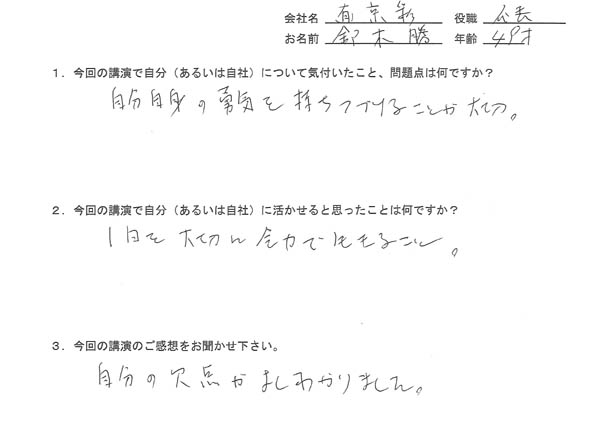 会社名 有京彩 役職 社長
お名前 鈴木勝 年齢 49才
1．今回の講演で自分（あるいは自社）について気付いたこと、問題点は何ですか？
自分自身の勇気を持ちつづけることが大切。
2．今回の講演で自分（あるいは自社）に活かせると思ったことは何ですか？
1日を大切に全力で生きること。
3．今回の講演のご感想をお聞かせ下さい。
自分の欠点が わかりました。